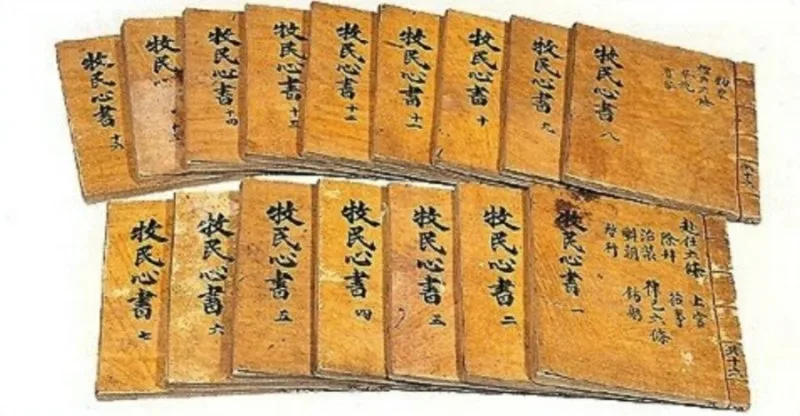 牧民心書 八
牧民心書 九
牧民心書 十
牧民心書 十一
牧民心書 十二
牧民心書 十三
牧民心書 十四
牧民心
牧民心書 十六
共十六
赴任六條 上官
除拜 莅事
治裝 律己六條
辭朝 飭躬
啓行
牧民心書 一
牧民心書 二
牧民心書 三
牧民心書 四
牧民心書 五
牧民心書 六
牧民心書 七